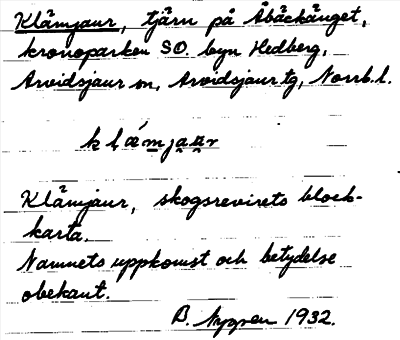 Klämjaur, tjärn på Åbäckänget,
kronoparken SO. byn Hedberg,
Arvidsjaur sn, Arvidsjaur tg, Norrb. l.
klǽmjau̯r
Klämjaur, skogsrevirets block-
karta.
Namnets uppkomst och betydelse
obekant.
B. Nygren 1932.